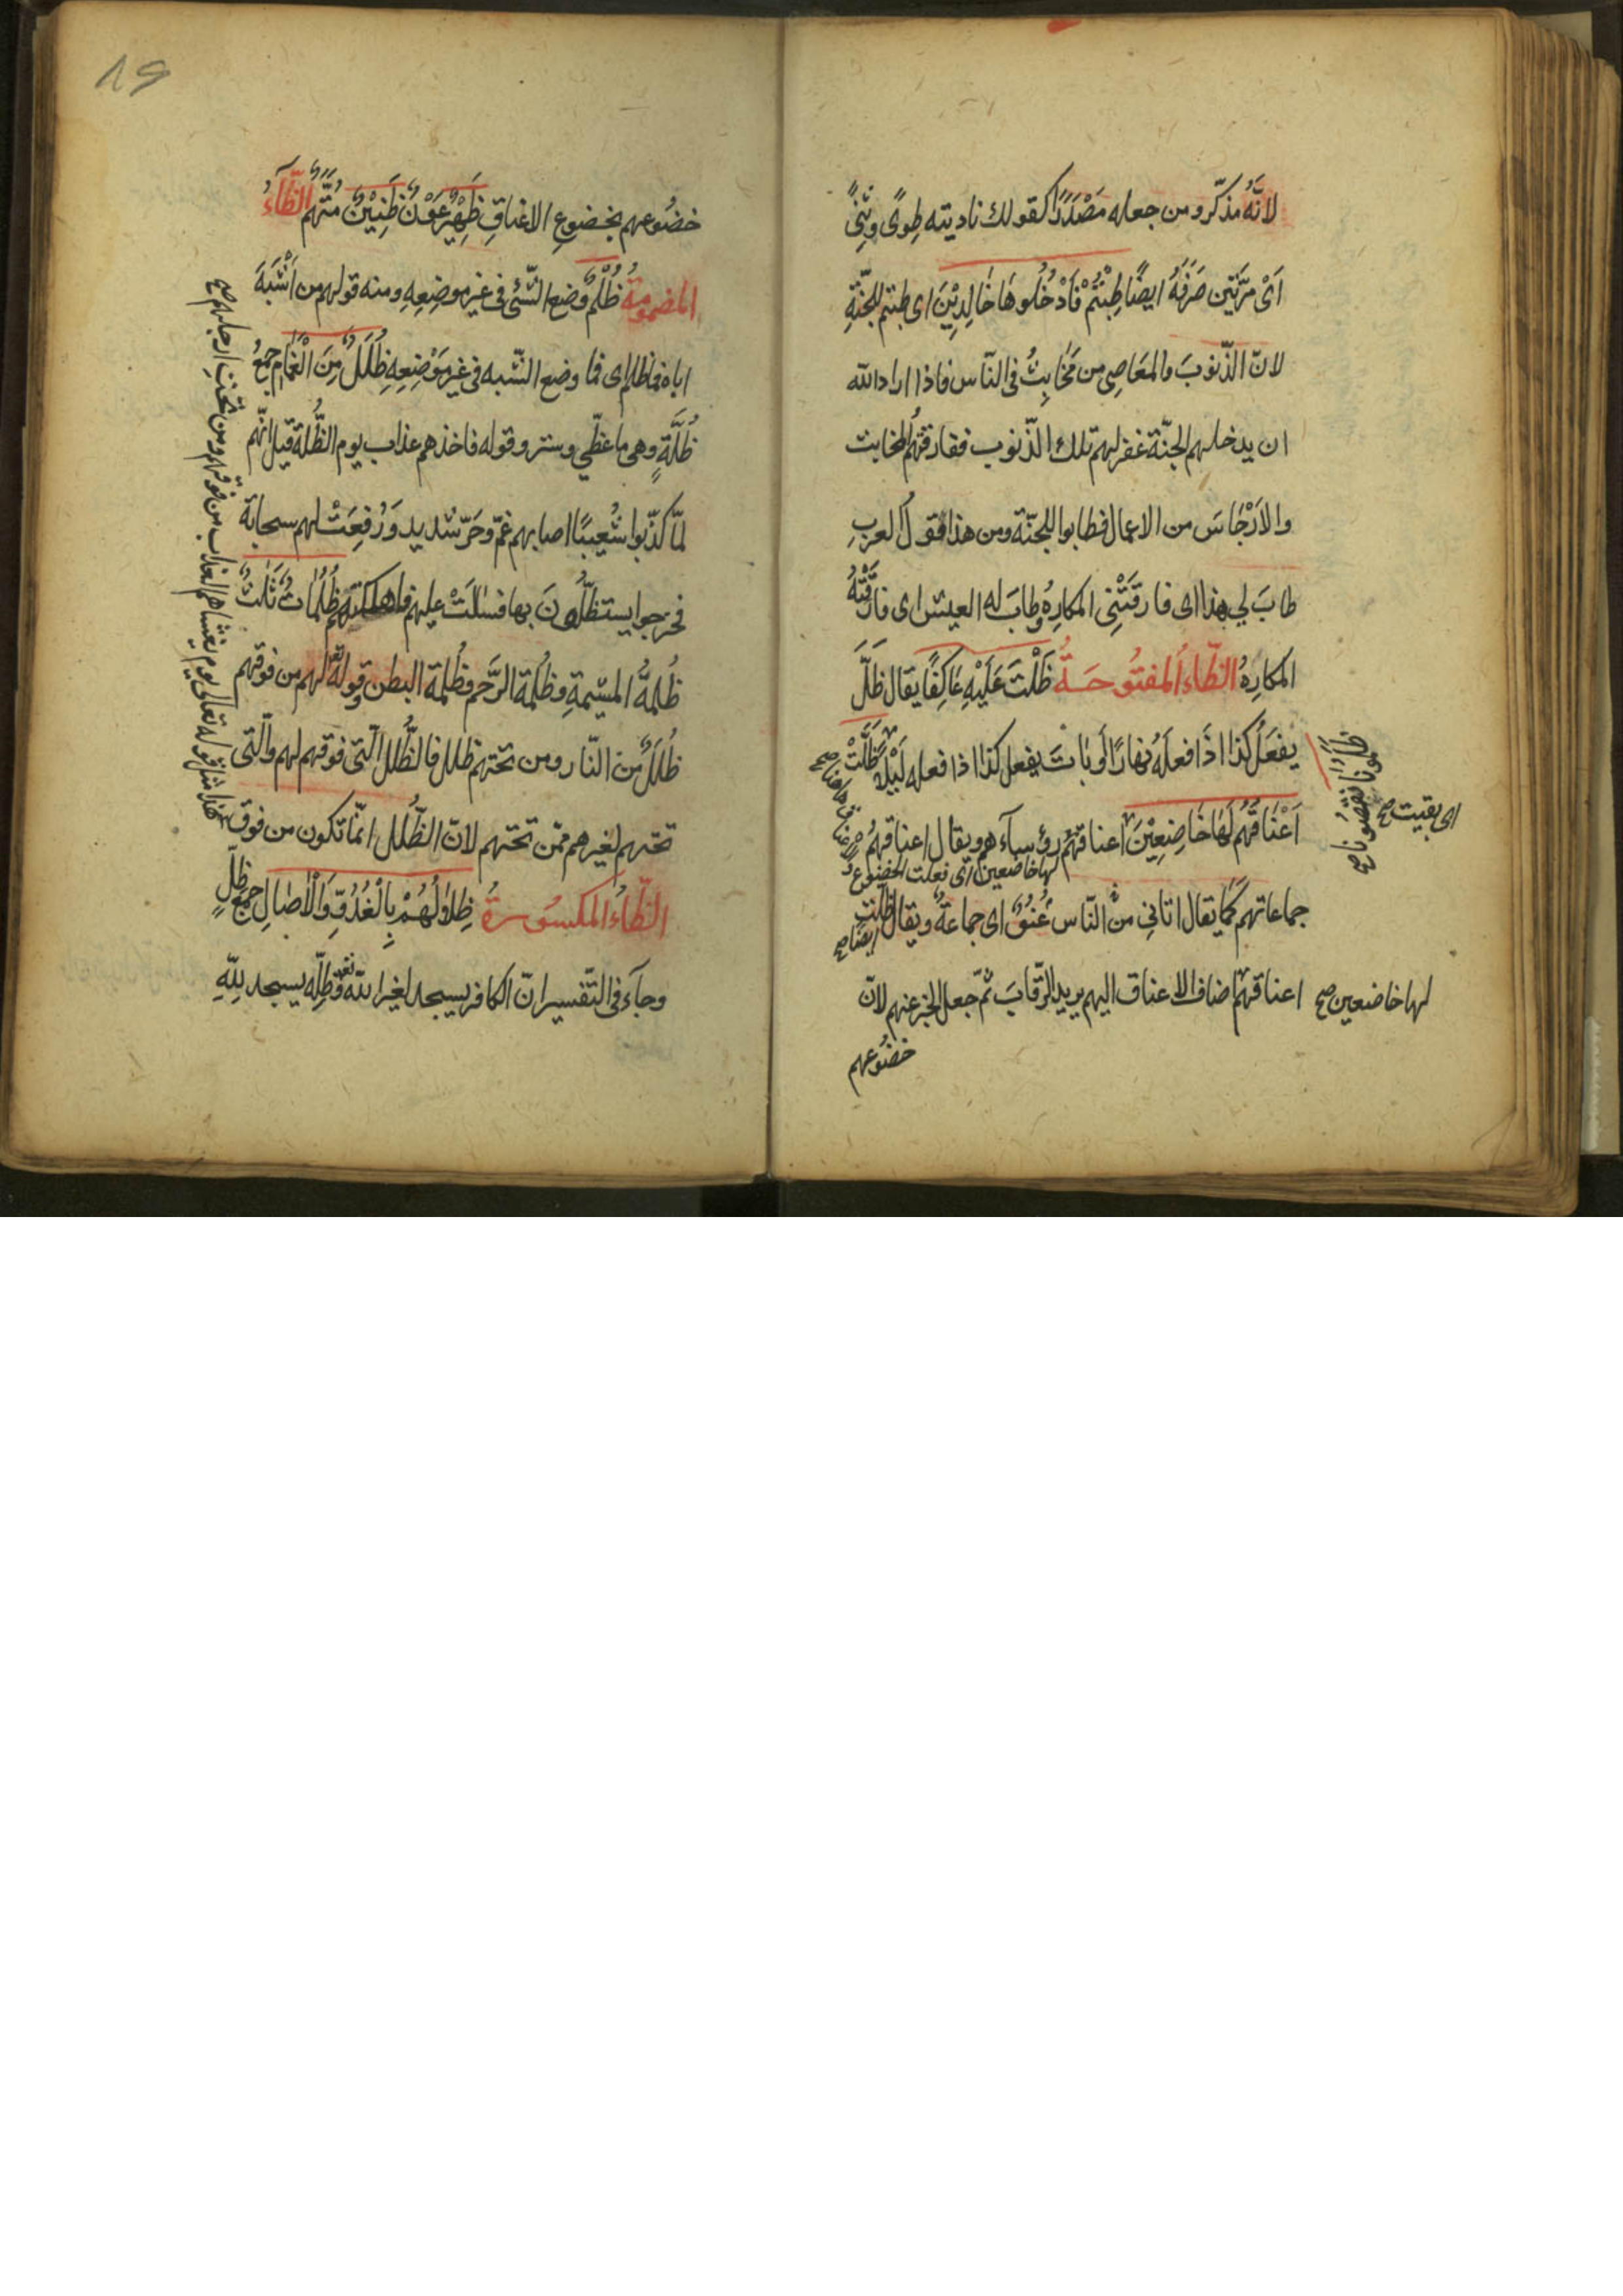 لانّهُ مذكّر ومن جعله مَصْدَرًا كقولك ناديته طِوىً وثِنىً
اَىْ مَرَّتَين صَرَفَهُ ايضًا طِبْتُمْ فَادْخُلُوهَا خَالِدِيْنَ اى طبتم للجنّةِ
لانّ الذّنوبَ والمَعَاصِى من مَخَابِثُ فى النّاس فاذا اراد الله
ان يدخلهم الجنّة غفر لهم تلك الذّنوب ففارقتْهُم المخابث
والاَرْجَاسَ من الاعمال فطابوا للجنّة ومن هذا فقولُ العربِ
طابَ لي هذا اى فارقَتْنِى المكارِهُ وطابَ له العيش اى فارَقَتْهُ
المكارِهُ الظّاءُ المفتُوحَةُ ظَلْتَ عَلَيْهِ عَاكِفًا يقال ظَلَّ
يفعَلُ كذا اذَا فعلَهُ نهارًا وبَاتَ يفعل كذا اذا فعله لَيْلًا فَظَلَّتْ
اَعْنَاقُهُم لَهَا خَاضِعِيْنَ اعناقهُمْ رؤسآءهم ويقال اعناقهُمْ
جماعاتهم كَمَا يقال اتانِي منَ النّاس عُنُقٌ اى جماعةٌ ويقال
اعناقهُمْ اضاف الاعناق اليهم يريد الرّقابَ ثمّ جعل الخبر عنهم لانّ
خضُوعهم
اى بقيت صح
لها خاضعين اى فظلت الخضوع
ايضا صح
لها خاضعين صح
١٩
خضُوعهم بخضوعِ الاعناقِ ظَهِيْرٌ عَوْنٌ ظَنِيْنٌ مُتَّهَمٌ الظّآءُ
المضمومةُ ظُلْمٌ وضع الشّئ فى غير موضِعِهِ ومنه قولهم من اَشْبَهَ
اباه فما ظلم اى فما وضع الشّبه فى غير مَوْضِعِهِ ظُلَلٌ مِنَ الْغَمَامِ جمعُ
ظُلَّةٍ وهى ما غطّي وستر وقوله فاخذهم عذاب يوم الظُّلَّة قيل انّهم
لمّا كذّبوا شُعيبًا اصابهم غمّ وحَرّ شديد وَرُفِعَتْ لهم سحابة
فخرجوا يستظلّونَ بها فسَالَتْ عليهم فاهلكتهم ظُلُمَاتٌ ثَلٰثٌ
ظُلمَةُ المشيمةِ وظُلمَة الرَّحِم وظُلمة البطن وقوله تع لهم من فوقهم
ظُلَلٌ مّنَ النّار ومن تحتهم ظلل فالظُّلل الّتى فوقهم لهم والّتى
تحتهم لغيرهم ممّن تحتهم لانّ الظُّلل انّما تكون من فوق
الظّاءُ المكسُورةُ ظِلَالُهُمْ بِالْغُدُوِّ وَالْاٰصَالِ جمعُ ظِلٍّ
وجآء فى التّفسير انّ الكافر يسجد لغير الله تع وظِلّه يسجد لِلّهِ
هذا مثل قوله تعالى يوم يغشاهم العذاب من فوقهم ومن تحت ارجلهم صح